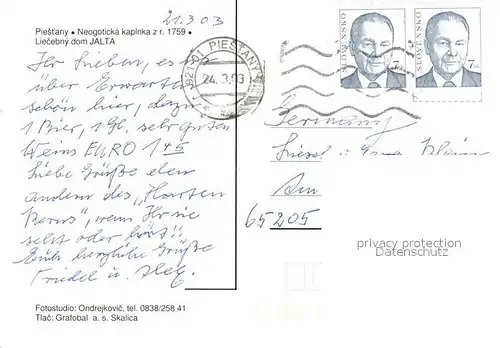 21.3.03
Piešťany • Neogotická kaplnka z r. 1759 •
Liečebný dom JALTA
Ihr Lieben, es ist
über Erwarten
schön hier, dazu
1 Bier, 1 Gl. sehr guten
Weins EURO
Liebe Grüße den
andern des „Harten
Kerns", wenn Ihr sie
seht oder hört!!
Euch herzliche Grüße
Friedel u.
921 01 PIEŠŤANY 1
24.3.03
SLOVENSKO
7
SLOVENSKO
7
Germany
65205
privacy protection
Datenschutz
Fotostudio: Ondrejkovič, tel. 0838/258 41
Tlač: Grafobal a. s. Skalica